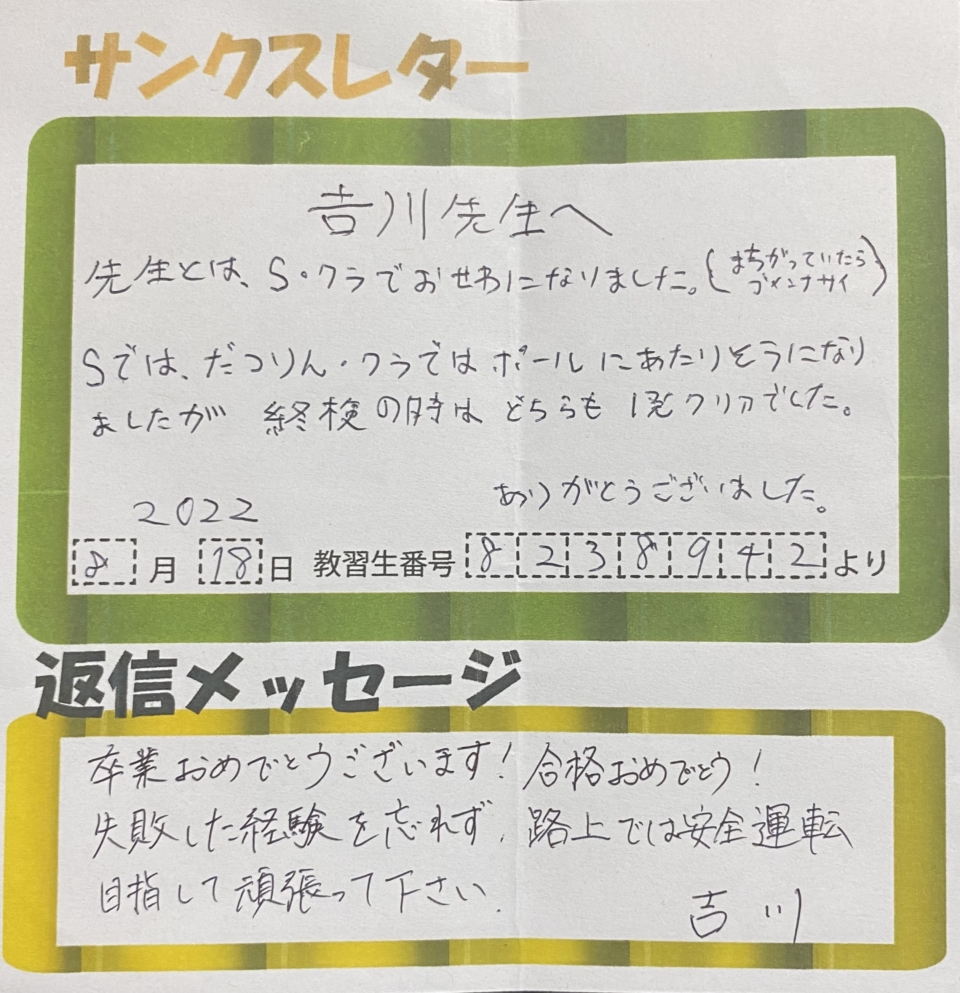 サンクスレター
吉川先生へ
先生とは、S・クラでおせわになりました。(まちがっていたら
ゴメンナサイ)
Sでは、だつりん・クラではポールにあたりそうになり
ましたが 終検の時は どちらも 1発クリアでした。
ありがとうございました。
2022
8月18日 教習生番号 8238942より
返信メッセージ
卒業おめでとうございます!合格おめでとう!
失敗した経験を忘れず、路上では安全運転
目指して頑張って下さい。
吉川